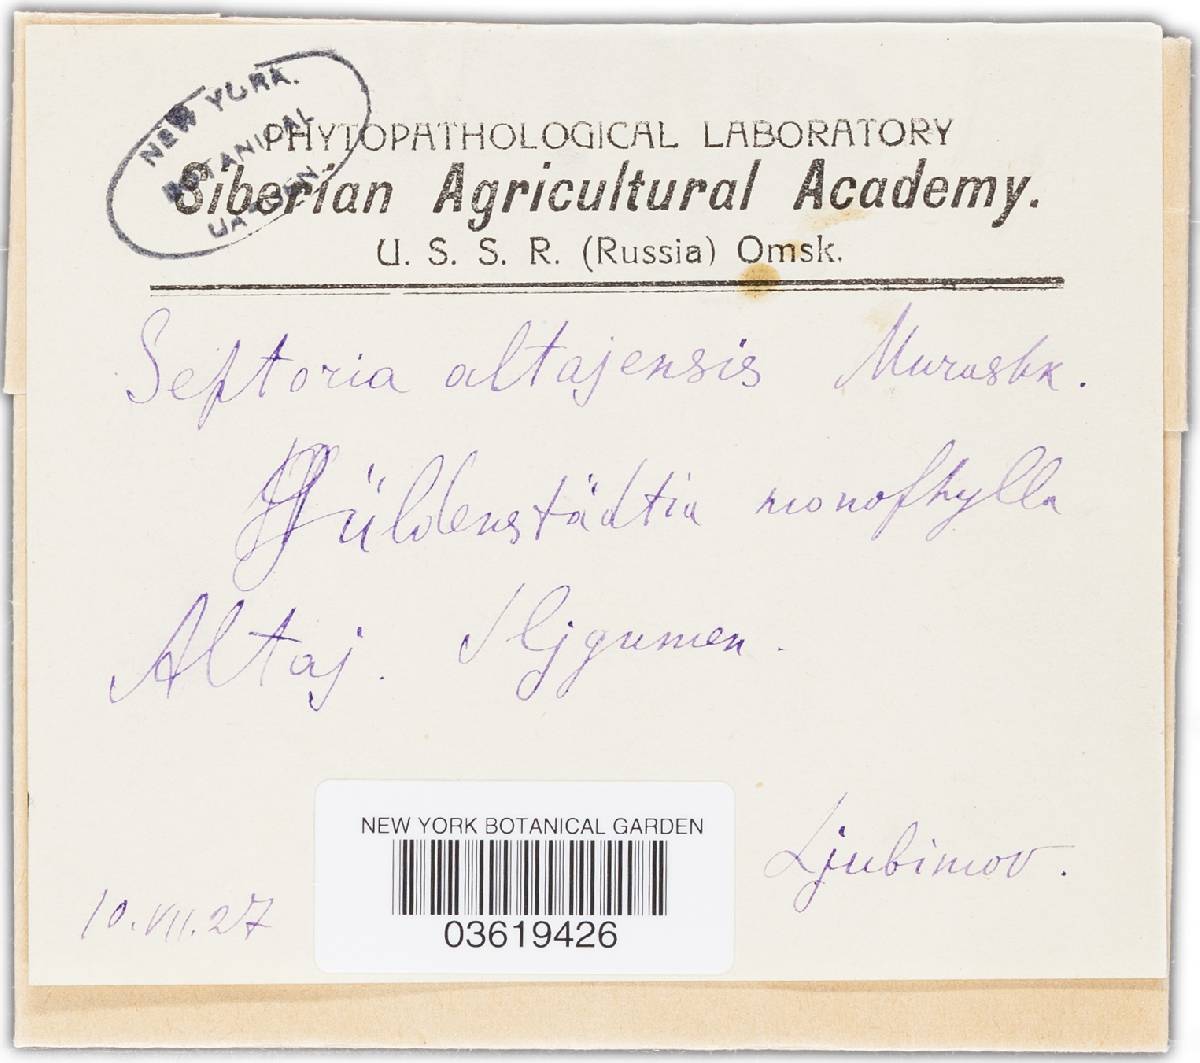 NEW YORK
BOTANICAL
GARDEN
PHYTOPATHOLOGICAL LABORATORY
Siberian Agricultural Academy.
U. S. S. R. (Russia) Omsk.
Septoria altajensis Murashk.
Güldenstädtia monophylla
Altaj. Iljgumen.
Ljubimov.
10.VII.27
NEW YORK BOTANICAL GARDEN
03619426